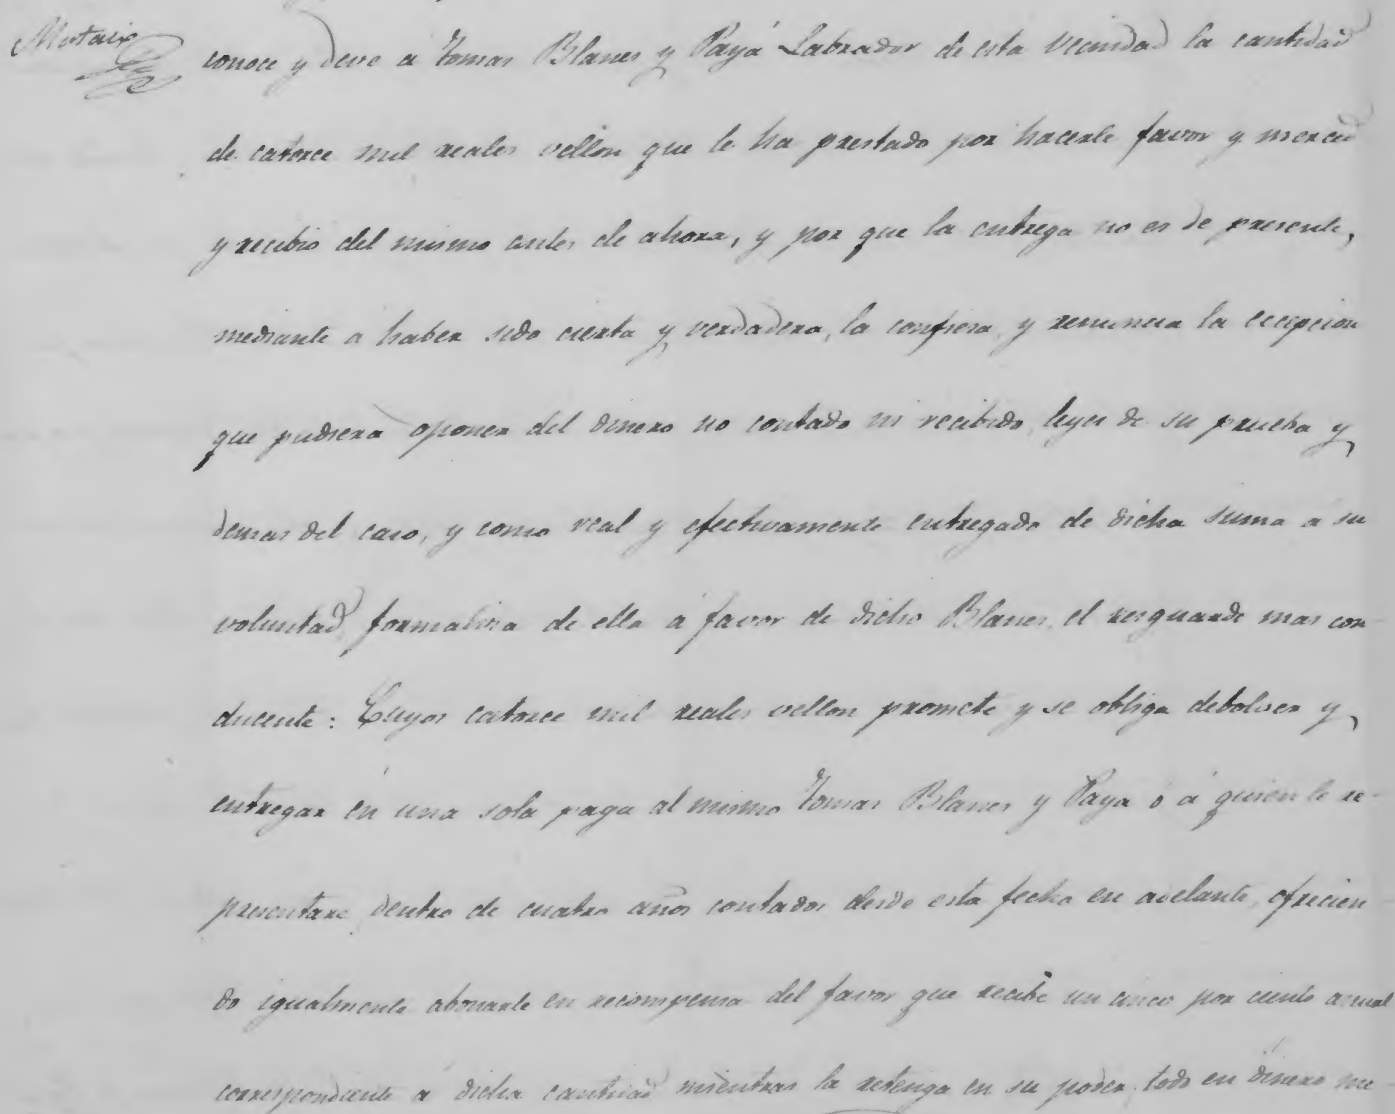 Mataix
conoce y deve a Tomas Blanes y Payá Labrador de esta Vecindad la cantidad
de catorce mil reales vellon que le ha prestado por hacerle favor y merced
y recibio del mismo antes de ahora, y por que la entrega no es de presente,
mediante a haber sido cierta y verdadera, la confiesa, y renuncia la ecepcion
que pudiera oponer del dinero no contado ni recibido, leyes de su prueba y
demas del caso, y como real y efectivamente entregado de dicha suma a su
voluntad, formaliza de ella á favor de dicho Blanes, el resguardo mas con-
ducente: Cuyos catorce mil reales vellon promete y se obliga debolver y
entregar en una sola paga al mismo Tomas Blanes y Paya ó á quien le re-
presentare, dentro de cuatro años contados desde esta fecha en adelante, ofrecien
do igualmente abonarle en recompensa del favor que recibe un cinco por ciento anual
correspondiente á dicha cantidad mientras la retenga en su poder, todo en dinero me-